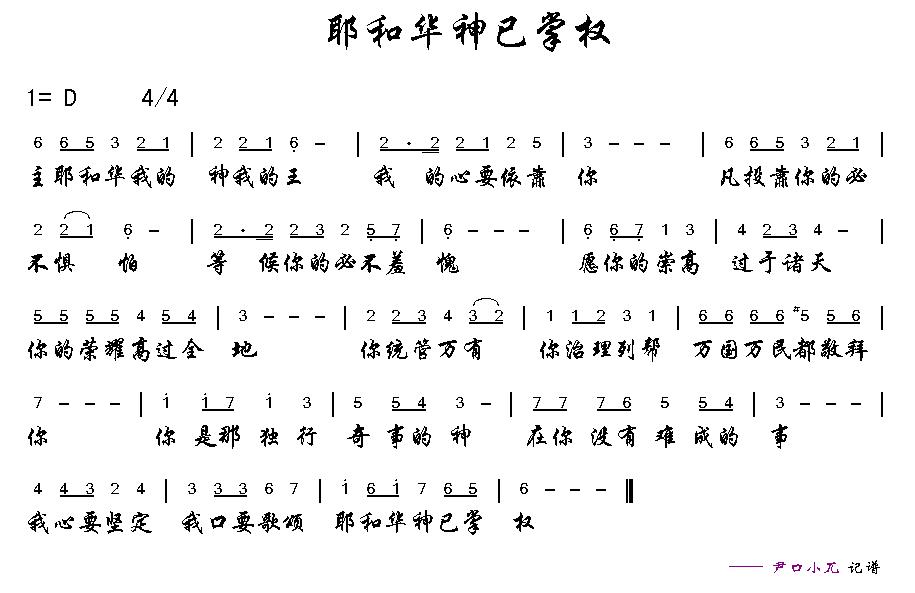 耶和华神已掌权
1= D 4/4
6 6 5 3 2 1 | 2 2 1 6 - | 2 · 2 2 1 2 5 | 3 - - - | 6 6 5 3 2 1 |
主耶和华我的 神我的王 我 的心要依靠 你 凡投靠你的必
2 2 1 6 - | 2 · 2 2 3 2 5 7 | 6 - - - | 6 6 7 1 3 | 4 2 3 4 - |
不惧 怕 等 候你的必不羞 愧 愿你的崇高 过于诸天
5 5 5 5 4 5 4 | 3 - - - | 2 2 3 4 3 2 | 1 1 2 3 1 | 6 6 6 6 #5 5 6 |
你的荣耀高过全 地 你统管万有 你治理列帮 万国万民都敬拜
7 - - - | 1 1 7 1 3 | 5 5 4 3 - | 7 7 7 6 5 5 4 | 3 - - - |
你 你 是那 独 行 奇 事的 神 在你 没有 难 成的 事
4 4 3 2 4 | 3 3 3 6 7 | 1 6 1 7 6 5 | 6 - - - ‖
我心要坚定 我口要歌颂 耶和华神已掌 权
—— 尹口小兀 记谱